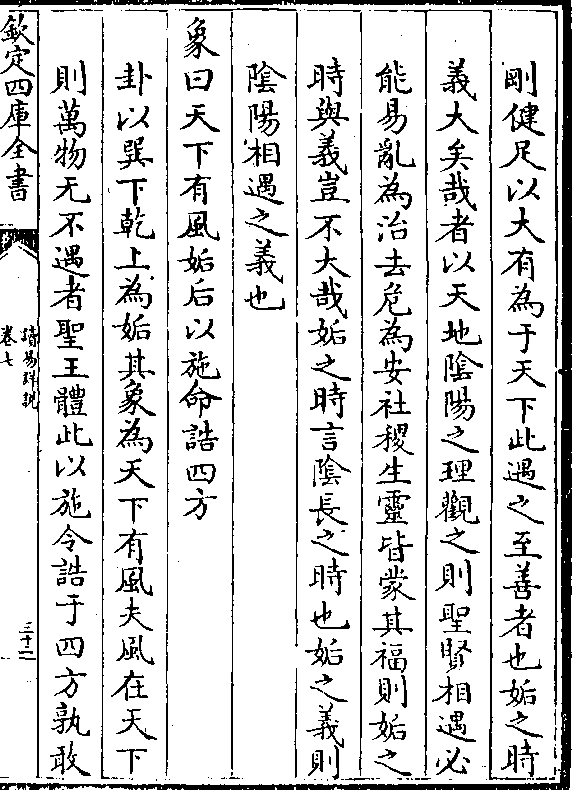 剛健足以大有為于天下此遇之至善者也姤之時
義大矣哉者以天地陰陽之理觀之則聖賢相遇必
能易亂為治去危為安社稷生靈皆蒙其福則姤之
時與義豈不大哉姤之時言陰長之時也姤之義則
陰陽相遇之義也
象曰天下有風姤后以施命誥四方
卦以巽下乾上為姤其象為天下有風夫風在天下
則萬物无不遇者聖王體此以施令誥于四方孰敢
欽定四庫全書
讀易詳說
卷七
三十二